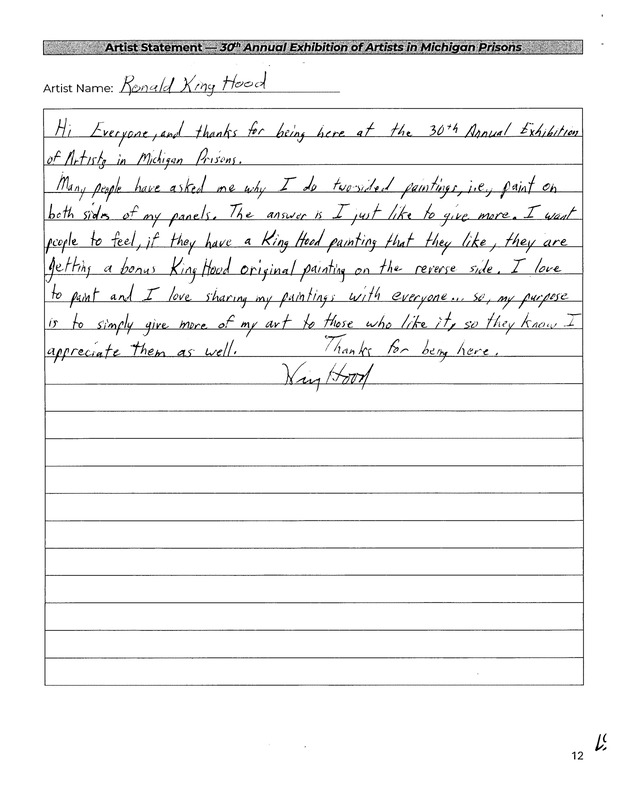 Artist Statement — 30th Annual Exhibition of Artists in Michigan Prisons
Artist Name: Ronald King Hood
Hi Everyone, and thanks for being here at the 30th Annual Exhibition
of Artists in Michigan Prisons.
Many people have asked me why I do two-sided paintings, i.e., paint on
both sides of my panels. The answer is I just like to give more. I want
people to feel, if they have a King Hood painting that they like, they are
getting a bonus King Hood original painting on the reverse side. I love
to paint and I love sharing my paintings with everyone... so, my purpose
is to simply give more of my art to those who like it, so they know I
appreciate them as well. Thanks for being here.
King Hood
12